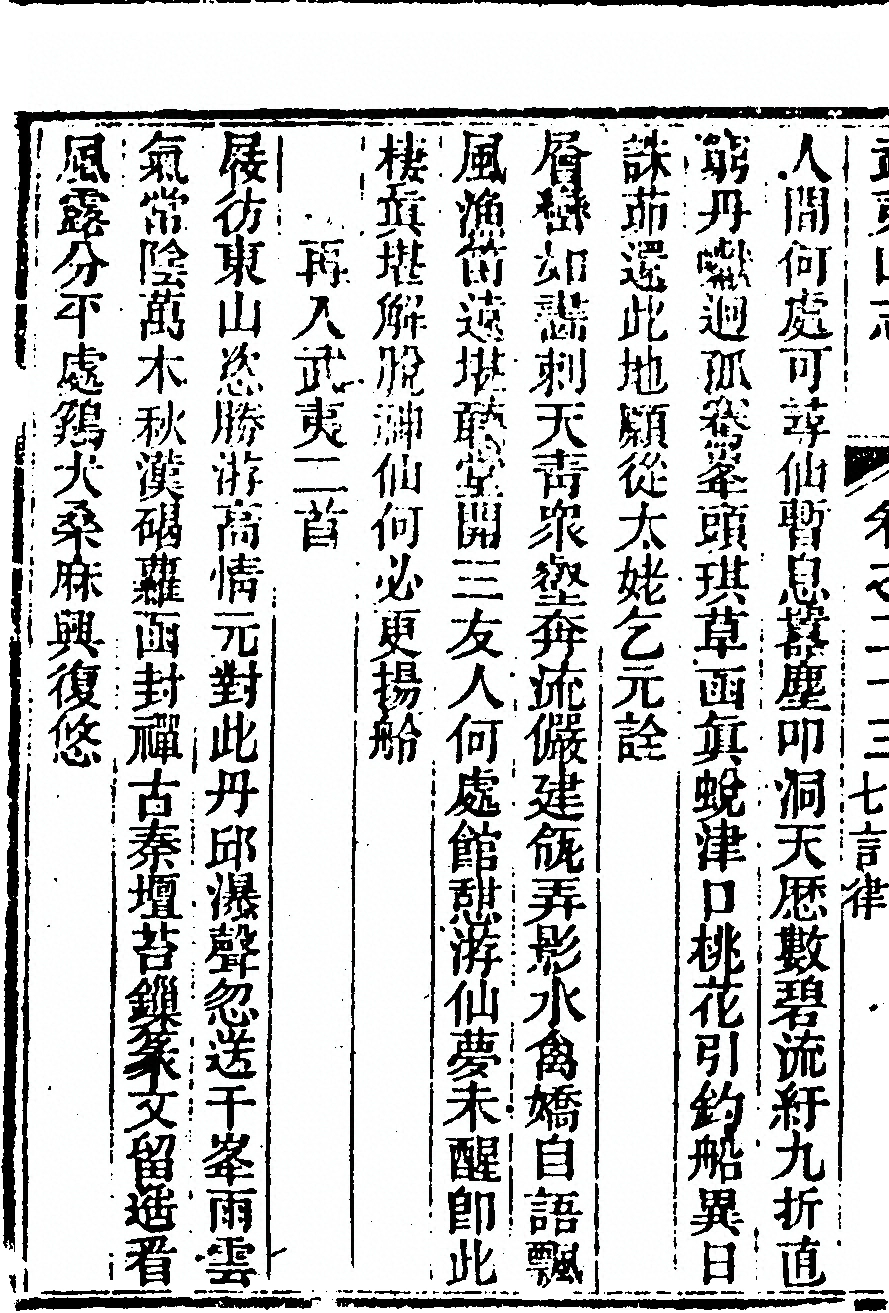 武夷山志 卷之二十三 七言律
人間何處可尋仙暫息囂塵叩洞天歷數碧流紆九折直
窮丹巘迥孤騫峯頭琪草函眞蛻津口桃花引釣船異日
誅茆還此地願從太姥乞元詮
層巒如翳刺天靑衆壑奔流儼建瓴弄影水禽嬌自語飄
風漁笛遠堪聽堂開三友人何處館憩游仙夢未醒卽此
棲眞堪解脫神仙何必更揚舲
再入武夷二首
屐彷東山恣勝游高情元對此丹邱瀑聲忽送千峯雨雲
氣常陰萬木秋漢碣蘿函封禪古秦壇苔鏁篆文留遙看
風露分平處鷄犬桑麻興復悠